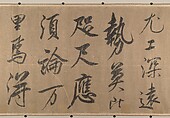 尤工深遠
勢莫比
咫尺應
須論万
里焉得